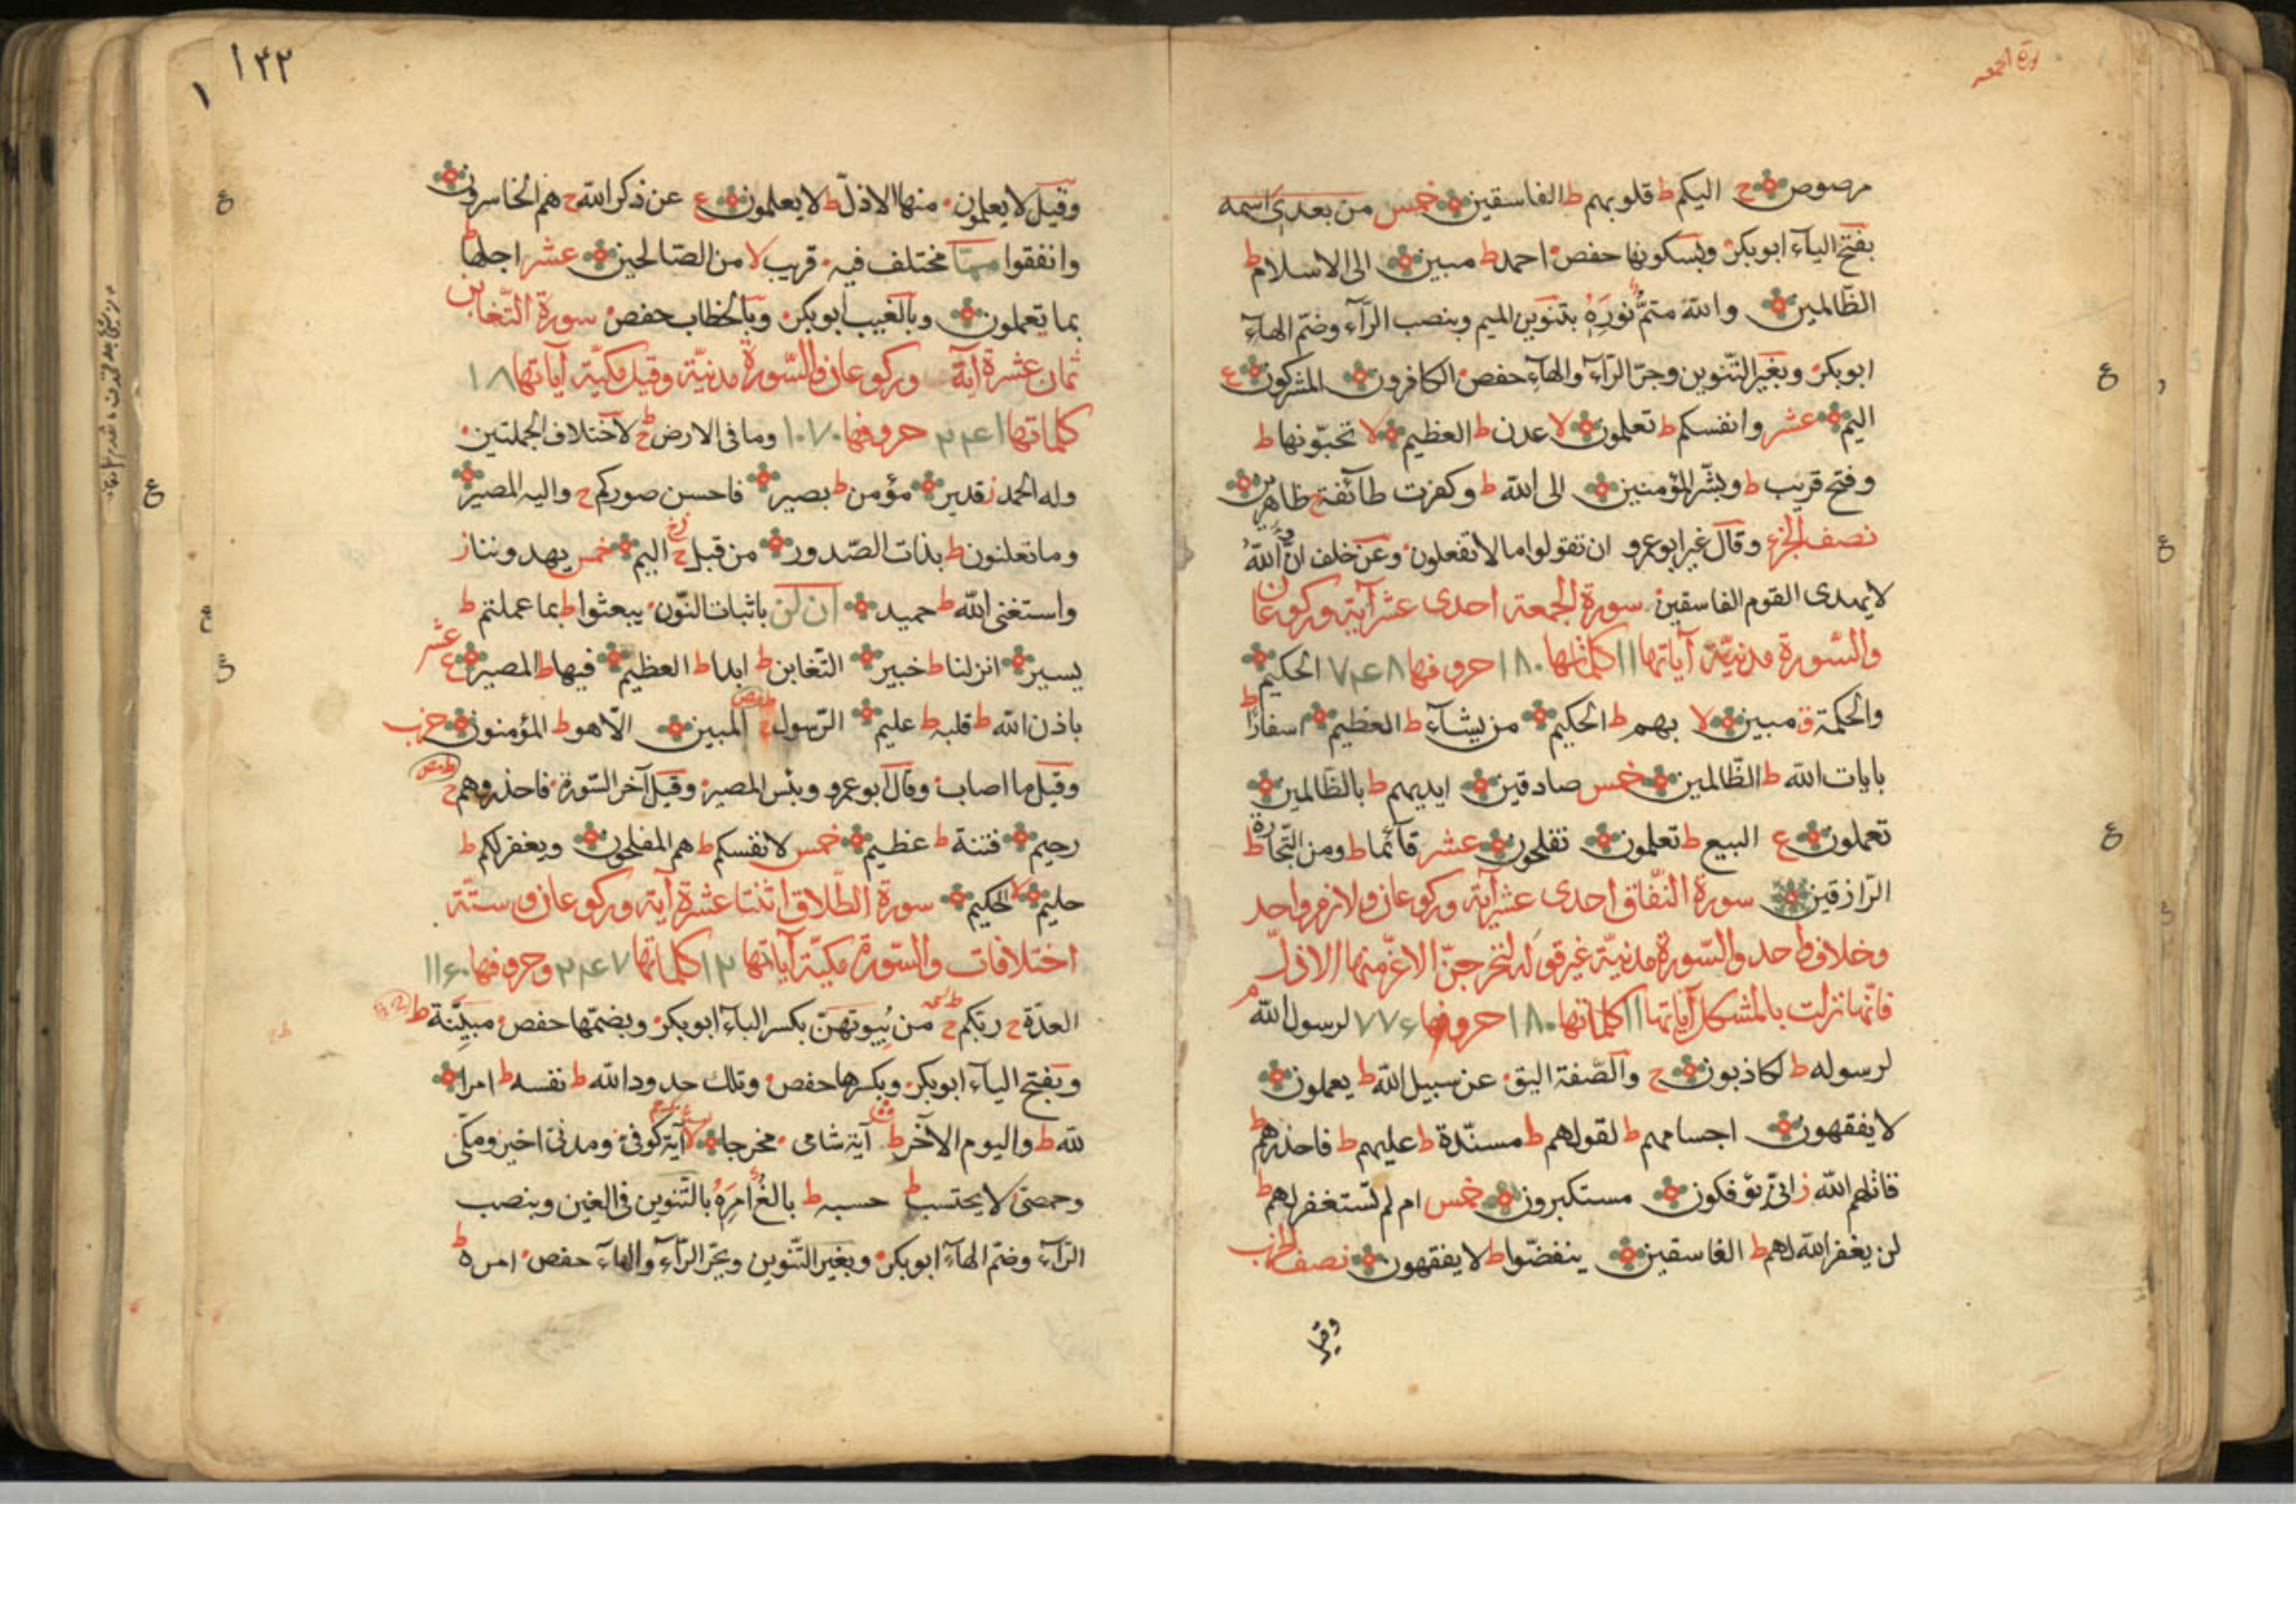 سورة الجمعه
مرصوص ح اليكم ط قلوبهم ط الفاسقين خمس من بعدى اسمه
بفتح الياء ابوبكر وبسكونها حفص احمد ط مبين الى الاسلام ط
الظّالمين والله متمٌّ نورَهُ بتنوين الميم وبنصب الرّآء وضمّ الهآء
ابوبكر وبغير التّنوين وجرّ الرّآء والهآء حفص الكافرون المشركون ع
اليم عشر وانفسكم ط تعلمون لا عدن ط العظيم لا تحبّونها ط
وفتح قريب ط وبشّر المؤمنين الى الله ط وكفرت طآئفة ح ظاهرين
نصف الجزء وقال غير ابوعمرو ان تقولوا ما لا تفعلون وعن خلف انّ اللهُ
لا يهدى القوم الفاسقين سورة الجمعة احدى عشر آية وركوعان
والسّورة مدنيّة آياتها ١١ كلماتها ١٨٠ حروفها ٧٤٨ الحكيم
والحكمة ق مبين لا بهم ط الحكيم من يشآء ط العظيم اسفارًا ط
بايات الله ط الظّالمين خمس صادقين ايديهم ط بالظّالمين
تعملون ع البيع ط تعلمون تفلحون عشر قآئما ط ومن التّجارة ط
الرّازقين سورة النّفاق احدى عشر آية وركوعان ولازم واحد
وخلاف واحد والسّورة مدنيّة غير قوله لنخرجنّ الاعزّ منها الاذلّ
فانّها نزلت بالمشكل آياتها ١١ كلماتها ١٨٠ حروفها ٧٧٦ لرسول الله م
لرسوله ط لكاذبون ح والصّفة اليق عن سبيل الله ط يعملون
لا يفقهون اجسامهم ط لقولهم ط مسنّدة ط عليهم ط فاحذرهم ط
قاتلهم الله ز انّى يؤفكون مستكبرون خمس ام لم تستغفر لهم ط
لن يغفر الله لهم ط الفاسقين ينفضّوا ط لا يفقهون نصف الحزب
وقيل
١٤٢
١
وقيل لا يعلمون منها الاذلّ ط لا يعلمون ع عن ذكر الله ح هم الخاسرون
وانفقوا ممّا مختلف فيه قريب لا من الصّالحين عشر اجلها ط
بما تعملون وبالغيب ابوبكر وبالخطاب حفص سورة التّغابن
ثمان عشرة آية وركوعان والسّورة مدنيّة وقيل مكيّة آياتها ١٨
كلماتها ٢٤١ حروفها ١٠٧٠ وما فى الارض ح لاختلاف الجملتين
وله الحمد ز قدير مؤمن ط بصير فاحسن صوركم ح واليه المصير
وما تعلنون ط بذات الصّدور من قبل ح اليم خمس يهدوننا ز
واستغنى الله ط حميد ان لن باثبات النّون يبعثوا ط بما عملتم ط
يسير انزلنا ط خبير التّغابن ط ابدا ط العظيم فيها ط المصير ع عشر
باذن الله ط قلبه ط عليم الرّسول ح المبين الّا هو ط المؤمنون حزب
وقيل ما اصاب وقال ابوعمرو وبئس المصير وقيل آخر السّورة فاحذروهم ح
رحيم فتنة ط عظيم خمس لانفسكم ط هم المفلحون ويغفر لكم ط
حليم لا الحكيم سورة الطّلاق اثنتا عشرة آية وركوعان وستّة
اختلافات والسّورة مكيّة آياتها ١٢ كلماتها ٢٤٧ وحروفها ١١٦٠
العدّة ح ربّكم ح من بُيوتهنّ بكسر الباء ابوبكر وبضمّها حفص مبيّنة ط
وبفتح الياء ابوبكر وبكسرها حفص وتلك حدود الله ط نفسه ط امرا
لله ط واليوم الآخر ط آية شامى مخرجا لا آية كوفى ومدنى اخير ومكّى
وحمصى لا يحتسب ط حسبه ط بالغٌ امرَهُ بالتّنوين فى الغين وبنصب
الرّآء وضمّ الهآء ابوبكر وبغير التّنوين وبجرّ الرّآء والهآء حفص امره ط